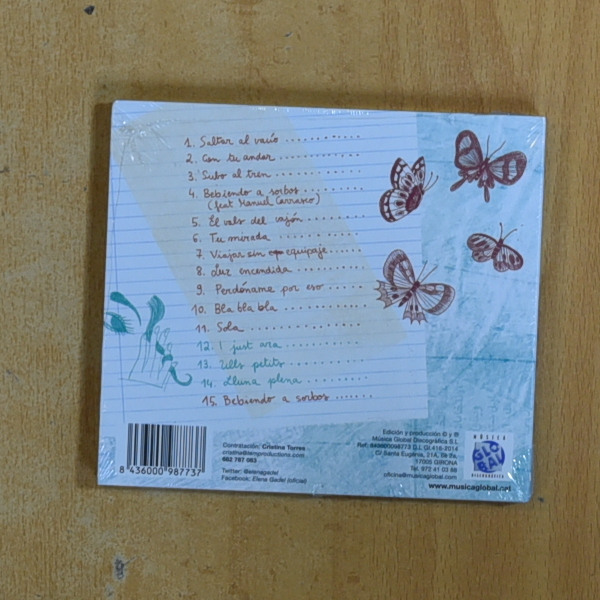 1. Saltar al vacío
2. Con tu andar
3. Subo al tren
4. Bebiendo a sorbos
(feat Manuel Carrasco)
5. El vals del vagón
6. Tu mirada
7. Viajar sin equipaje
8. Luz encendida
9. Perdóname por eso
10. Bla bla bla
11. Sola
12. I just ara
13. Ulls petits
14. Lluna plena
15. Bebiendo a sorbos
8 436000 987737
Contratación: Cristina Torres
662 767 063
Twitter: @elenagadel
Facebook: Elena Gadel (oficial)
Edición y producción © y ℗
Música Global Discogràfica S.L.
C/ Santa Eugènia, 214,
17005 GIRONA
Tel. 972 41 03 88
oficina@musicaglobal.com
www.musicaglobal.net
MÚSICA
GLOBAL
DISCOGRÀFICA